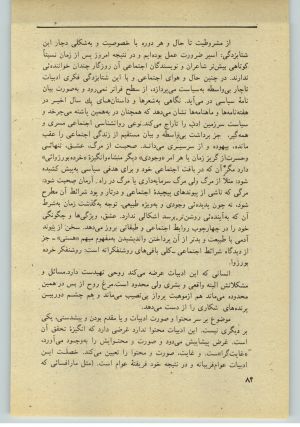 از مشروطیت تا حال و هر دوره با خصوصیت و بشکلی دچار این
شتابزدگی، اسیر ضرورت عمل بوده‌ایم و در نتیجه امروز پس از زمان نسبتاً
کوتاهی بیشتر شاعران و نویسندگان اجتماعی آن روزگار چندان خواندنی
ندارند. در چنین حال و هوای اجتماعی و با این شتابزدگی فکری ادبیات
ناچار بی‌واسطه به‌سیاست می‌پردازد، از سطح فراتر نمی‌رود و به‌صورت بیان
نامه سیاسی در می‌آید. نگاهی به‌شعرها و داستان‌های یک سال اخیر در
هفته‌نامه‌ها و ماهنامه‌ها نشان می‌دهد که همچنان در به‌همین پاشنه می‌چرخد و
سیاست سرزمین ادب را تاراج می‌کند. نوعی روانشناسی اجتماعی مسری و
همه‌گیر، جز برداشت بی‌واسطه و بیان مستقیم از زندگی اجتماعی را عقب
مانده، بیهوده و از سرسیری می‌داند. صحبت از مرگ، عشق، تنهائی
وحسرت از گریز زمان یا هر امر «وجودی» دیگر منشاء وانگیزهٔ «خرده‌بورژوائی»
دارد مگر آن که در بافت اجتماعی خود و برای هدفی سیاسی به‌پیش کشیده
شود: مثلاً از مرگ ولی مرگ سرمایه‌داری یا مرگ در راه... آرمان صحبت شود؛
مرگی که ناشی از پیوندهای پیچیدهٔ اجتماعی و درتار و پود شرائط آن مطرح
شود، نه چون پدیده‌ئی وجودی و به‌ویژه طبیعی. توجه به‌گذشت زمان به‌شرط
آن که به‌آینده‌ئی روشن‌تر برسد اشکالی ندارد. عشق، ویژگی‌ها و چگونگی
خود را در چهارچوب روابط اجتماعی و طبقاتی بروز می‌دهد. سخن از پیوند
آدمی با طبیعت و بدتر از آن پرداختن و اندیشیدن به‌مفهوم مبهم «هستی»، جز
از دیدگاه شرائط اجتماعی، کلی بافی‌های روشنفکرانه است؛ روشنفکر خرده
بورژوا.
انسانی که این ادبیات عرضه می‌کند روحی تهیدست دارد. مسائل و
مشکلاتش البته واقعی و بشری ولی محدود است. مرغ روح از بس در همین
محدوده می‌ماند هم از موهبت پرواز بی‌نصیب می‌ماند و هم چشم دوربین
پرنده‌های شکاری را از دست می‌دهد.
موضوع بر سر محتوا و صورت ادبیات و یا مقدم بودن و پیشدستی، یکی
بر دیگری نیست. این ادبیات محتوا ندارد غرضی دارد که انگیزه تحقق آن
است. غرض پیشاپیش می‌دود و صورت و محتوایش را به‌وجود می‌آورد،
«غایت‌گرا»ست. و غایت، صورت و محتوا را تعیین می‌کند. خصلت این
ادبیات عوام‌فریبانه و در نتیجه خود فریفتهٔ عوام است. (مثل مارافسائی که
۸۴